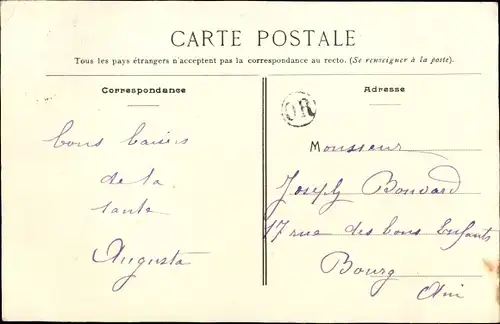 CARTE POSTALE
Tous les pays étrangers n'acceptent pas la correspondance au recto. (Se renseigner à la poste).
Correspondance
Adresse
OR
bons baisers
de la
tante
Augusta
Monsieur
Joseph Bouvard
17 rue des bons Enfants
Bourg
Ain